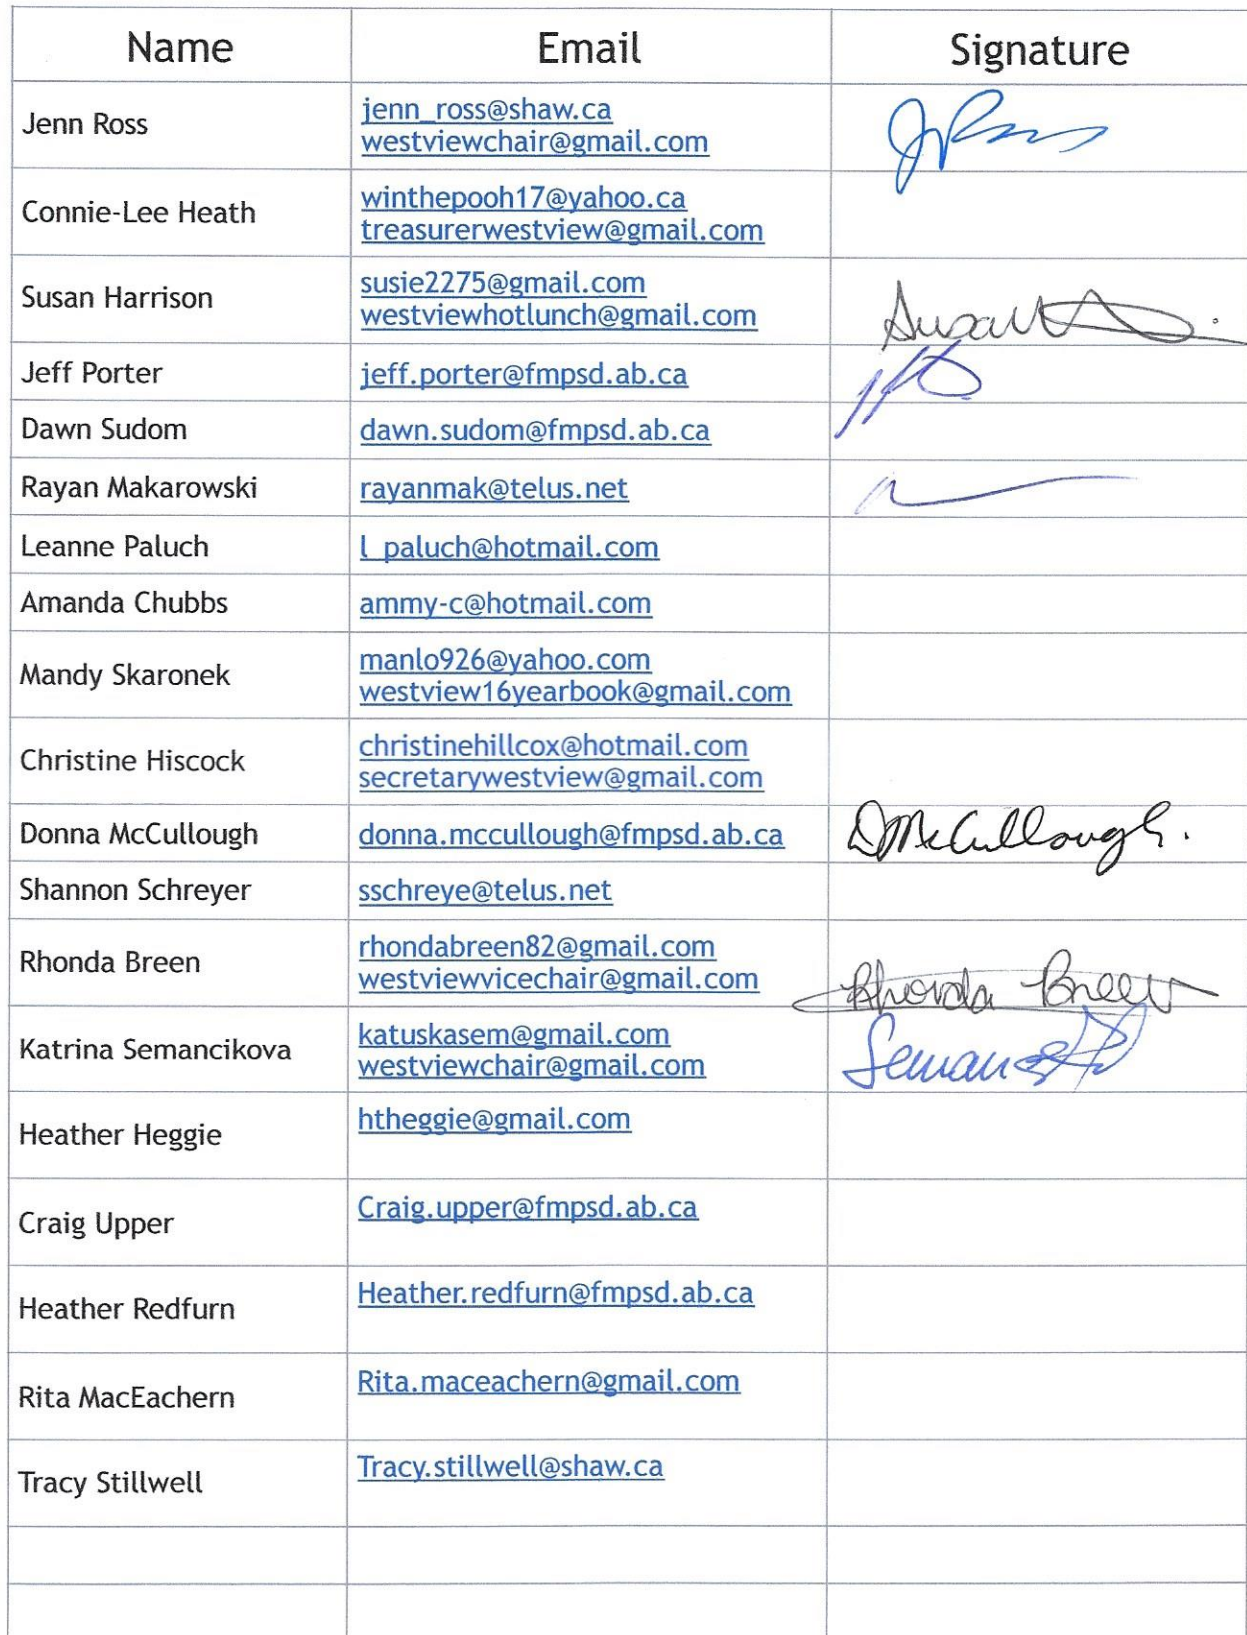 Name Email Signature
Jenn Ross
jenn_ross@shaw.ca
westviewchair@gmail.com
Connie-Lee Heath
winthepooh17@yahoo.ca
treasurerwestview@gmail.com
Susan Harrison
susie2275@gmail.com
westviewhotlunch@gmail.com
Susan
Jeff Porter jeff.porter@fmpsd.ab.ca
Dawn Sudom dawn.sudom@fmpsd.ab.ca
Rayan Makarowski rayanmak@telus.net
Leanne Paluch l_paluch@hotmail.com
Amanda Chubbs ammy-c@hotmail.com
Mandy Skaronek
manlo926@yahoo.com
westview16yearbook@gmail.com
Christine Hiscock
christinehillcox@hotmail.com
secretarywestview@gmail.com
Donna McCullough donna.mccullough@fmpsd.ab.ca DMcCullough.
Shannon Schreyer sschreye@telus.net
Rhonda Breen
rhondabreen82@gmail.com
westviewvicechair@gmail.com
Rhonda Breen
Katrina Semancikova
katuskasem@gmail.com
westviewchair@gmail.com
Heather Heggie htheggie@gmail.com
Craig Upper Craig.upper@fmpsd.ab.ca
Heather Redfurn Heather.redfurn@fmpsd.ab.ca
Rita MacEachern Rita.maceachern@gmail.com
Tracy Stillwell Tracy.stillwell@shaw.ca